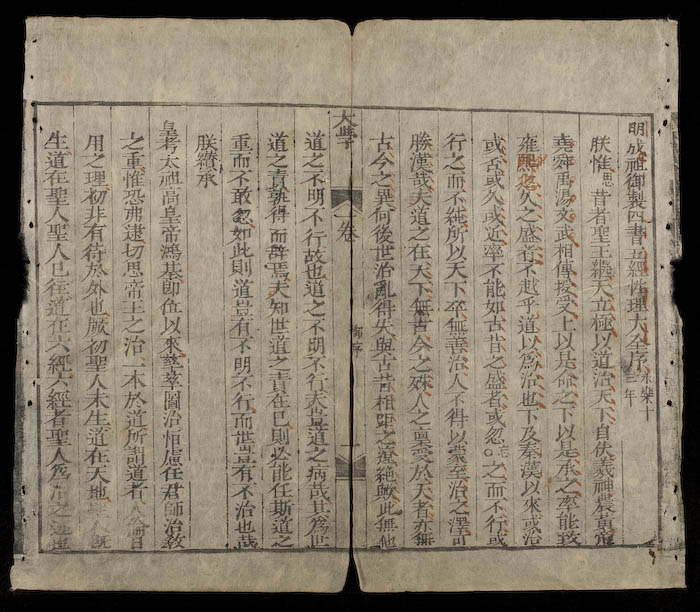 明成祖御製四書五經性理大全序 永樂十三年
朕惟思昔者聖王繼天立極以道治天下自伏羲神農黃帝
堯舜禹湯文武相傳授受上以是命之下以是承之率能致
雍熙悠久之盛者不越乎道以爲治也下及秦漢以來或治
或否或久或近率不能如古昔之盛者或忽之而不行或
行之而不純所以天下卒無善治人不得以蒙至治之澤可
勝漢哉夫道之在天下無古今之殊人之稟受於天者亦無
古今之異何後世治亂得失與古昔相距之遼絕歟此無他
大學 一卷 御序 一
道之不明不行故也道之不明不行夫豈道之病哉其爲世
道之責孰得而辭焉夫知世道之責在己則必能任斯道之
重而不敢忽如此則道豈有不明不行而世豈有不治也哉
朕纘承
皇考太祖高皇帝鴻基即位以來孳孳圖治恒慮任君師治教
之重惟恐弗逮切思帝王之治一本於道所謂道者人倫日
用之理初非有待於外也厥初聖人未生道在天地聖人既
生道在聖人聖人已往道在六經六經者聖人爲治之迹也